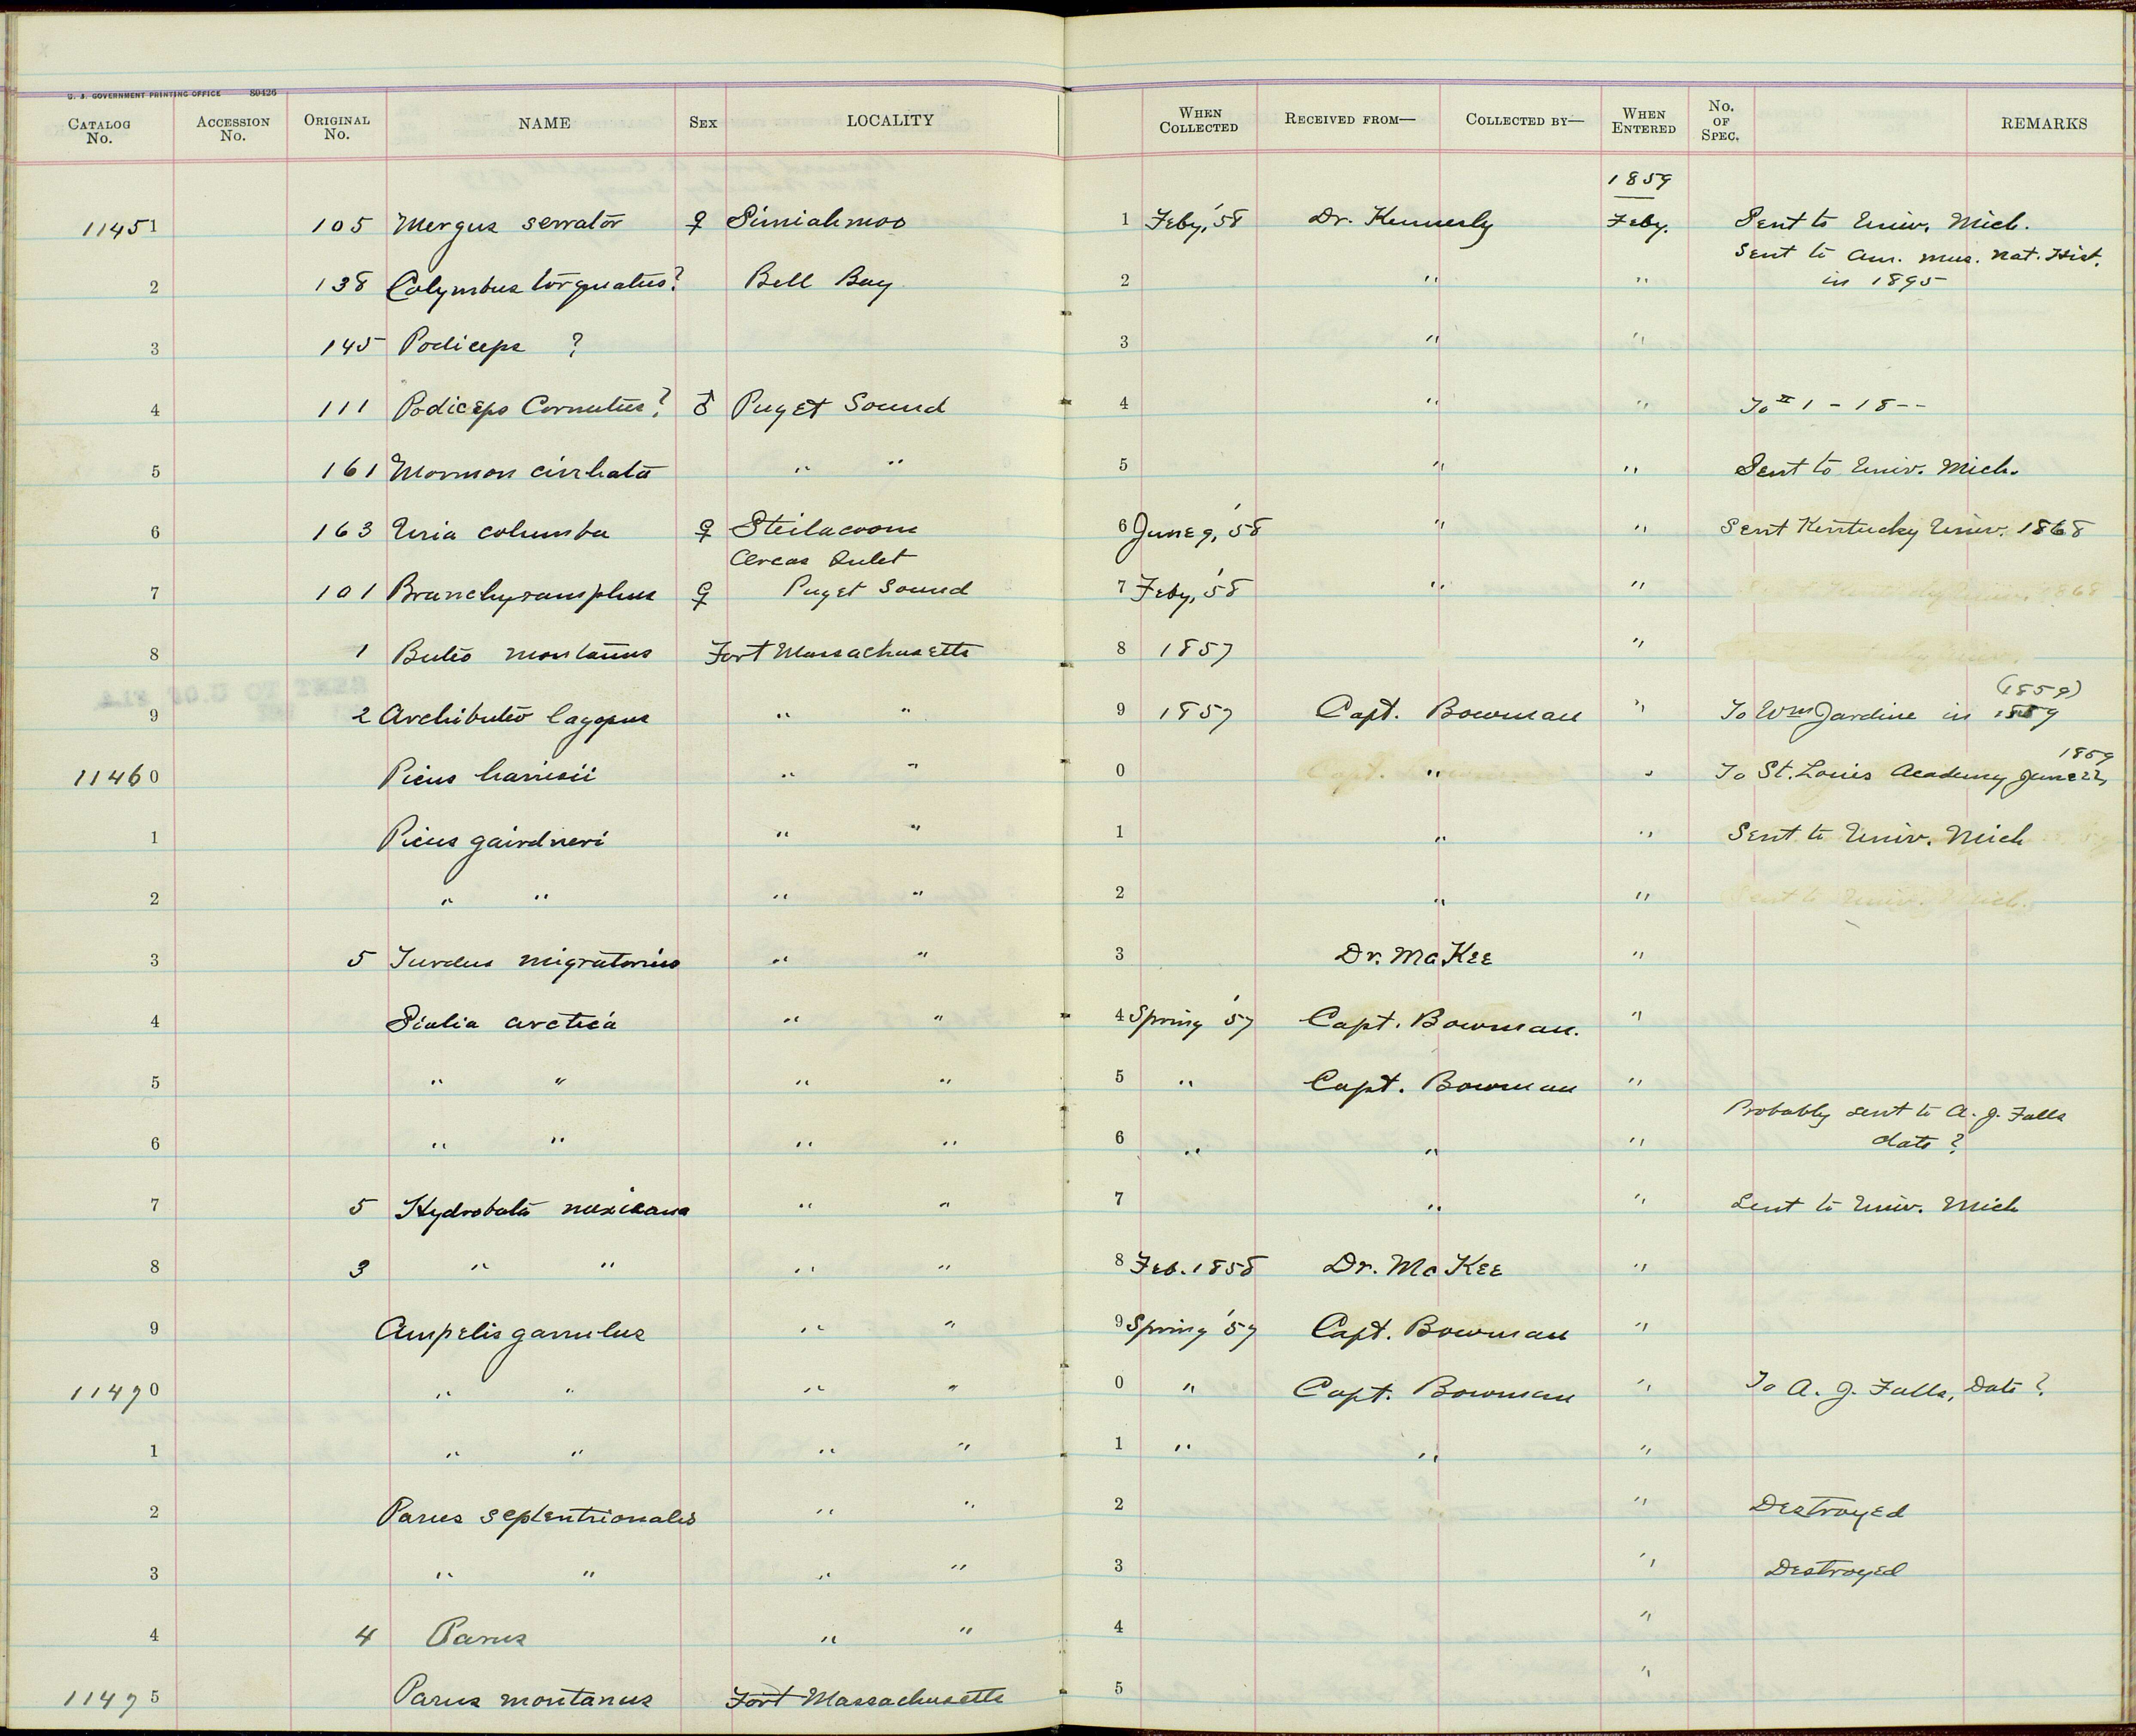 U. S. GOVERNMENT PRINTING OFFICE 80426
CATALOG No. ACCESSION No. ORIGINAL No. NAME SEX LOCALITY WHEN COLLECTED RECEIVED FROM— COLLECTED BY— WHEN ENTERED No. OF SPEC. REMARKS
1859
11451 105 Mergus serrator ♀ Simiahmoo 1 Feby, '58 Dr. Kennerly Feby. Sent to Univ. Mich.
Sent to Am. Mus. Nat. Hist.
2 138 Colymbus torquatus? Bell Bay 2 " " in 1895
3 145 Podiceps ? 3 " "
4 111 Podiceps Cornutus? ♂ Puget Sound 4 " " To II 1 - 18--
5 161 Mormon cirrhata " " 5 " " Sent to Univ. Mich.
6 163 Uria columba ♀ Steilacoom 6 June 9, '58 " " Sent Kentucky Univ. 1868
Orcas Inlet
7 101 Branchyramphus ♀ Puget Sound 7 Feby, '58 " "
8 1 Buteo montanus Fort Massachusetts 8 1857 "
(1859)
9 2 Archibuteo lagopus " " 9 1857 Capt. Bowman " To Wm Jardine in 1859
1859
11460 Picus harrisii " " 0 " " To St. Louis Academy June 22,
1 Picus gairdneri " " 1 " " Sent to Univ. Mich
2 " " " " 2 " " Sent to Univ. Mich.
3 5 Turdus migratorius " " 3 Dr. McKee "
4 Sialia arctica " " 4 Spring '57 Capt. Bowman. "
5 " " " " 5 " Capt. Bowman "
Probably sent to A. J. Falls
6 " " " " 6 " " " date ?
7 5 Hydrobata mexicana " " 7 " " Sent to Univ. Mich
8 3 " " " " 8 Feb. 1858 Dr. McKee "
9 Ampelis garrulus " " 9 Spring '57 Capt. Bowman "
11470 " " " " 0 " Capt. Bowman " To A. J. Falls, Date ?
1 " " " " 1 " " "
2 Parus septentrionalis " " 2 " Destroyed
3 " " " " 3 " Destroyed
4 4 Parus " " 4 "
11475 Parus montanus Fort Massachusetts 5 "